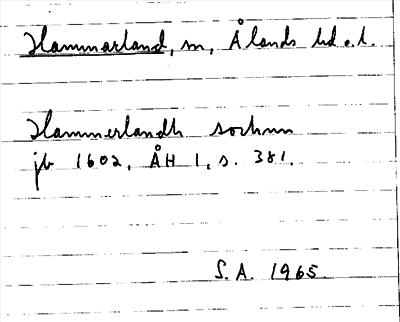 Hammarland, sn, Ålands hd o. l.
Hammerlandh sochnn
jb 1602, ÅH 1, s. 381.
S. A. 1965.